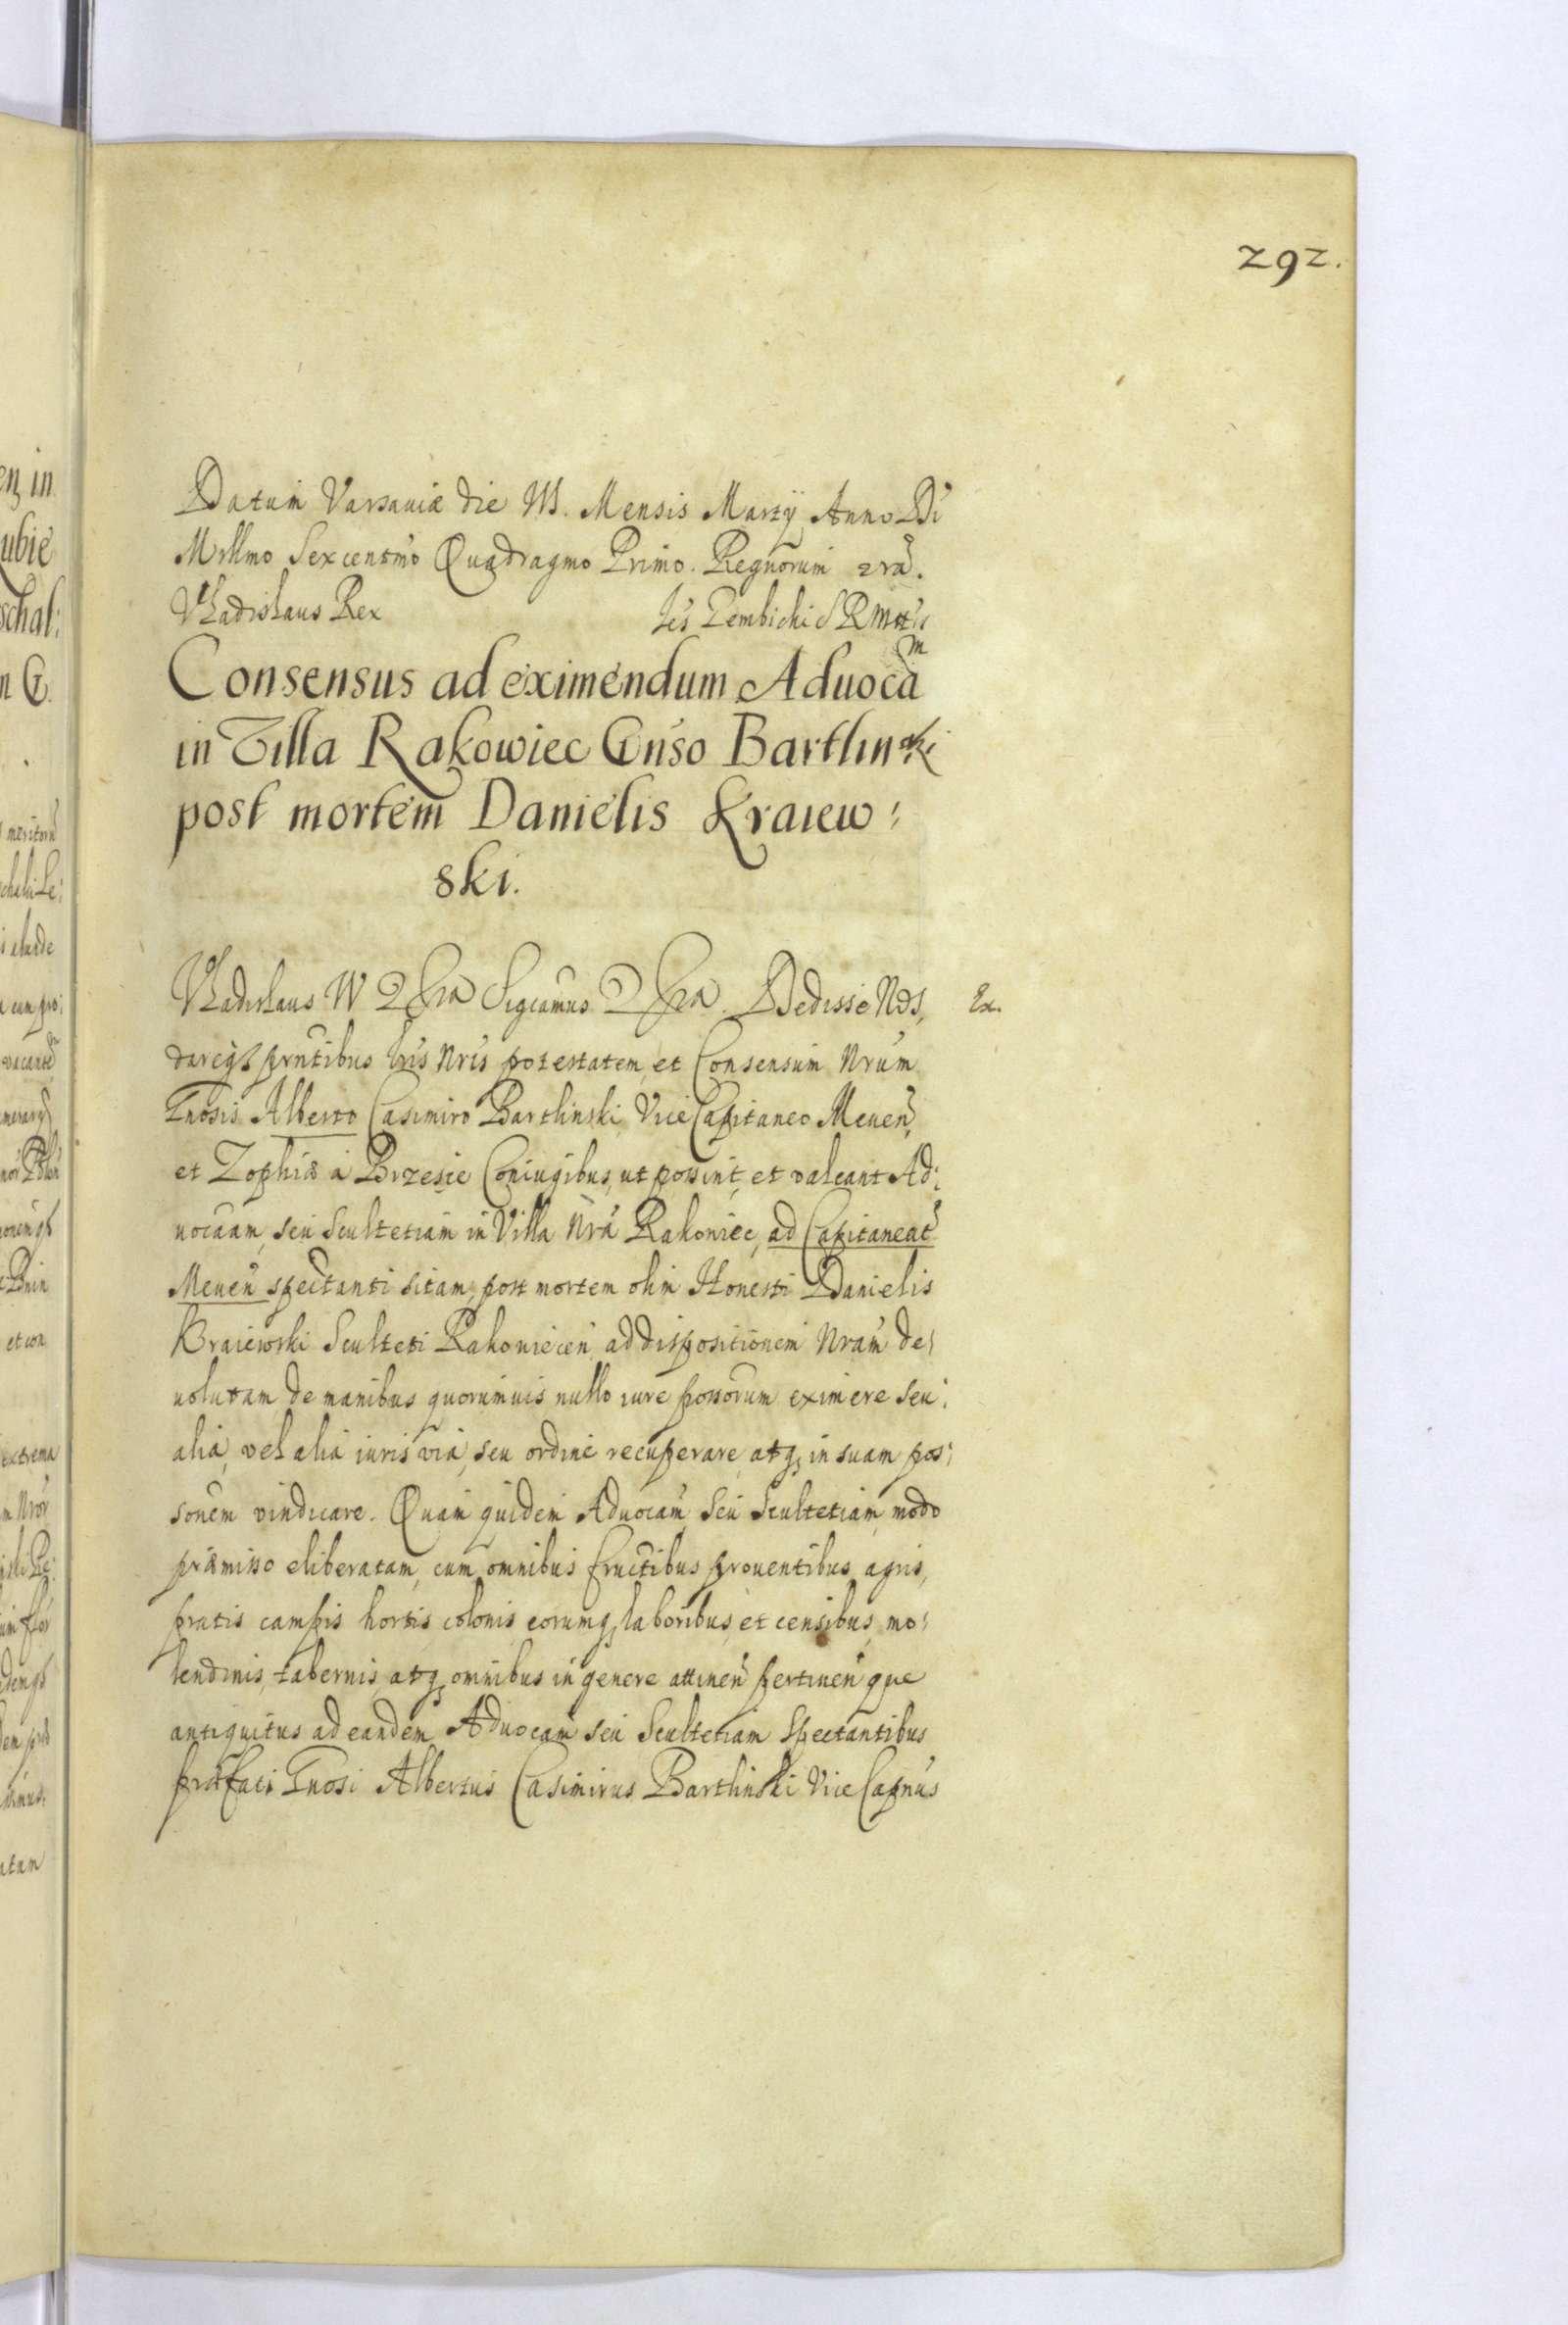 292.
Datum Varsauiæ die VII. Mensis Martÿ Anno Dĩ
Millmo Sexcentmo Quadragmo Primo. Regnorum zrã.
Vladislaus Rex Ies Gembicki S R Mttis
Consensus ad eximendum Aduocam
in Villa Rakowiec Gnso Bartlinski
post mortem Danielis Kraiew:
ski.
Vladislaus IV Sigcamus Dedisse Nos, Ex.
dareqз prntibus lris Nris potestatem, et Consensum Nrum
Gnosis Alberto Casimiro Bartlinski Vice Capitaneo Meuen,
et Zophiæ á Brzesie Coniugibus, ut possint, et valeant Ad:
uocaam, seu Scultetiam in Villa Nrã Rakoniec, ad Capitaneat
Meuen spectanti sitam, post mortem olim Honesti Danielis
Kraiewski Sculteti Rakoniecen ad dispositionem Nram de:
uolutam de manibus quorumuis nullo iure possorum eximere seu:
aliá, vel aliá iuris viá, seu ordine recuperare, atqз in suam pos:
sonem vindicare. Quam quidem Aduocam seu Scultetiam modo
præmisso eliberatam, cum omnibus fructibus prouentibus agris,
pratis campis hortis colonis eorumqз laboribus, et censibus, mo:
lendinis, tabernis, atqз omnibus in genere attinen pertinen que
antiquitus ad eandem Aduocam seu Scultetiam Spectantibus
præfati Gnosi Albertus Casimirus Bartlinski Vice Capnus